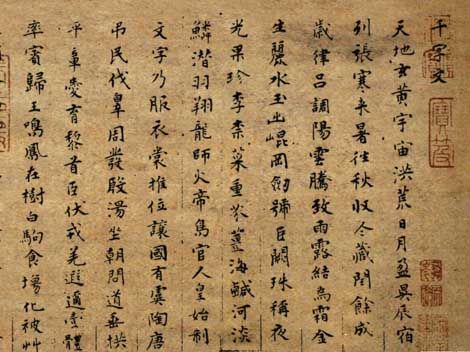 千字文
天地玄黃宇宙洪荒日月盈昃辰宿
列張寒来暑往秋收冬藏閏餘成
歲律呂調陽雲騰致雨露結為霜金
生麗水玉出崐岡劒號巨闕珠稱夜
光果珍李柰菜重芥薑海鹹河淡
鱗潛羽翔龍師火帝鳥官人皇始制
文字乃服衣裳推位讓國有虞陶唐
吊民伐辠周發殷湯坐朝問道垂拱
平章愛育黎首臣伏戎羌遐邇壹體
率賓歸王鳴鳳在樹白駒食場化被艸